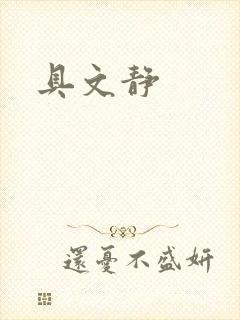 具文静
還憂不盛妍